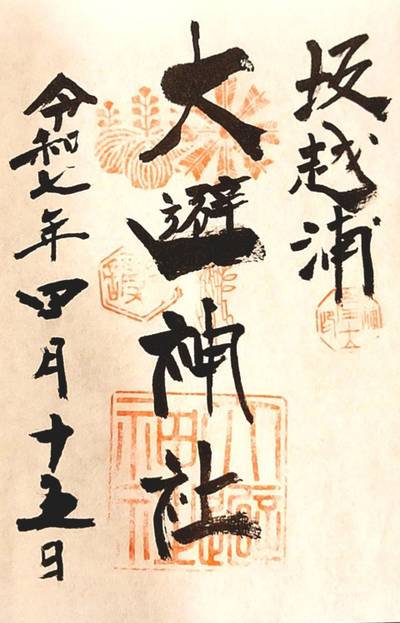 坂越浦
大避神社
令和七年四月十五日